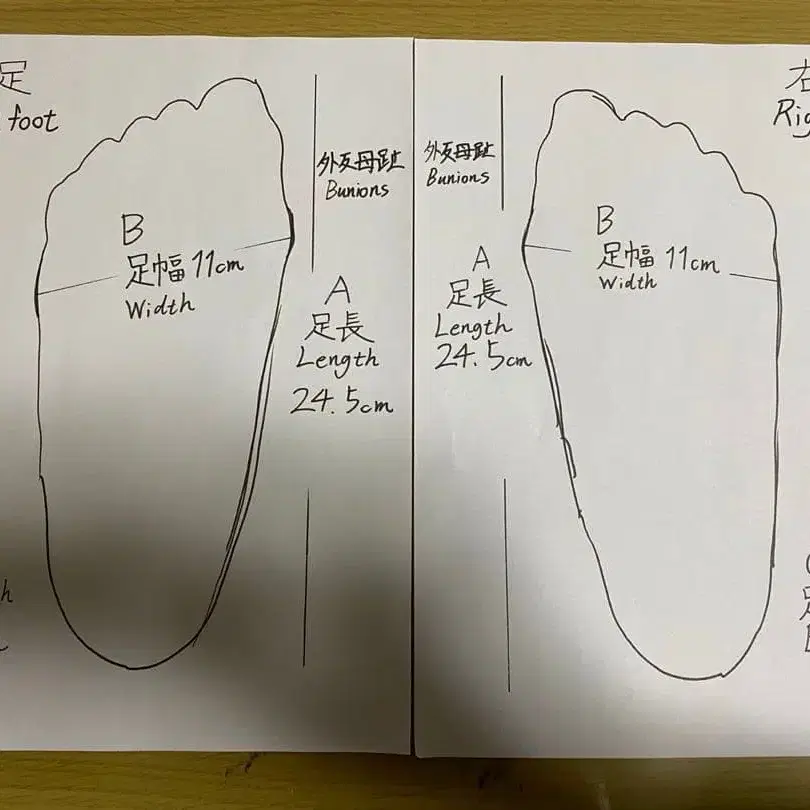 足
foot
外反母趾
Bunions
B
足幅 11cm
Width
A
足長
Length
24.5cm
h
右
Rig
外反母趾
Bunions
B
足幅 11cm
Width
A
足長
Length
24.5cm